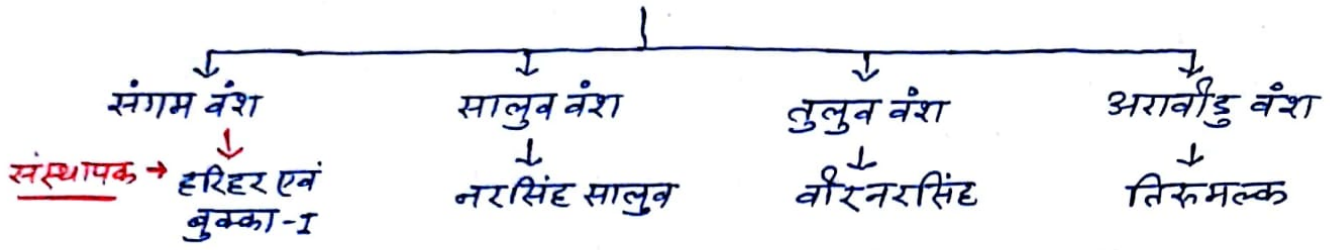 संगम वंश सालुव वंश तुलुव वंश अरावीडु वंश
संस्थापक → हरिहर एवं नरसिंह सालुव वीरनरसिंह तिरुमल्क
बुक्का-I